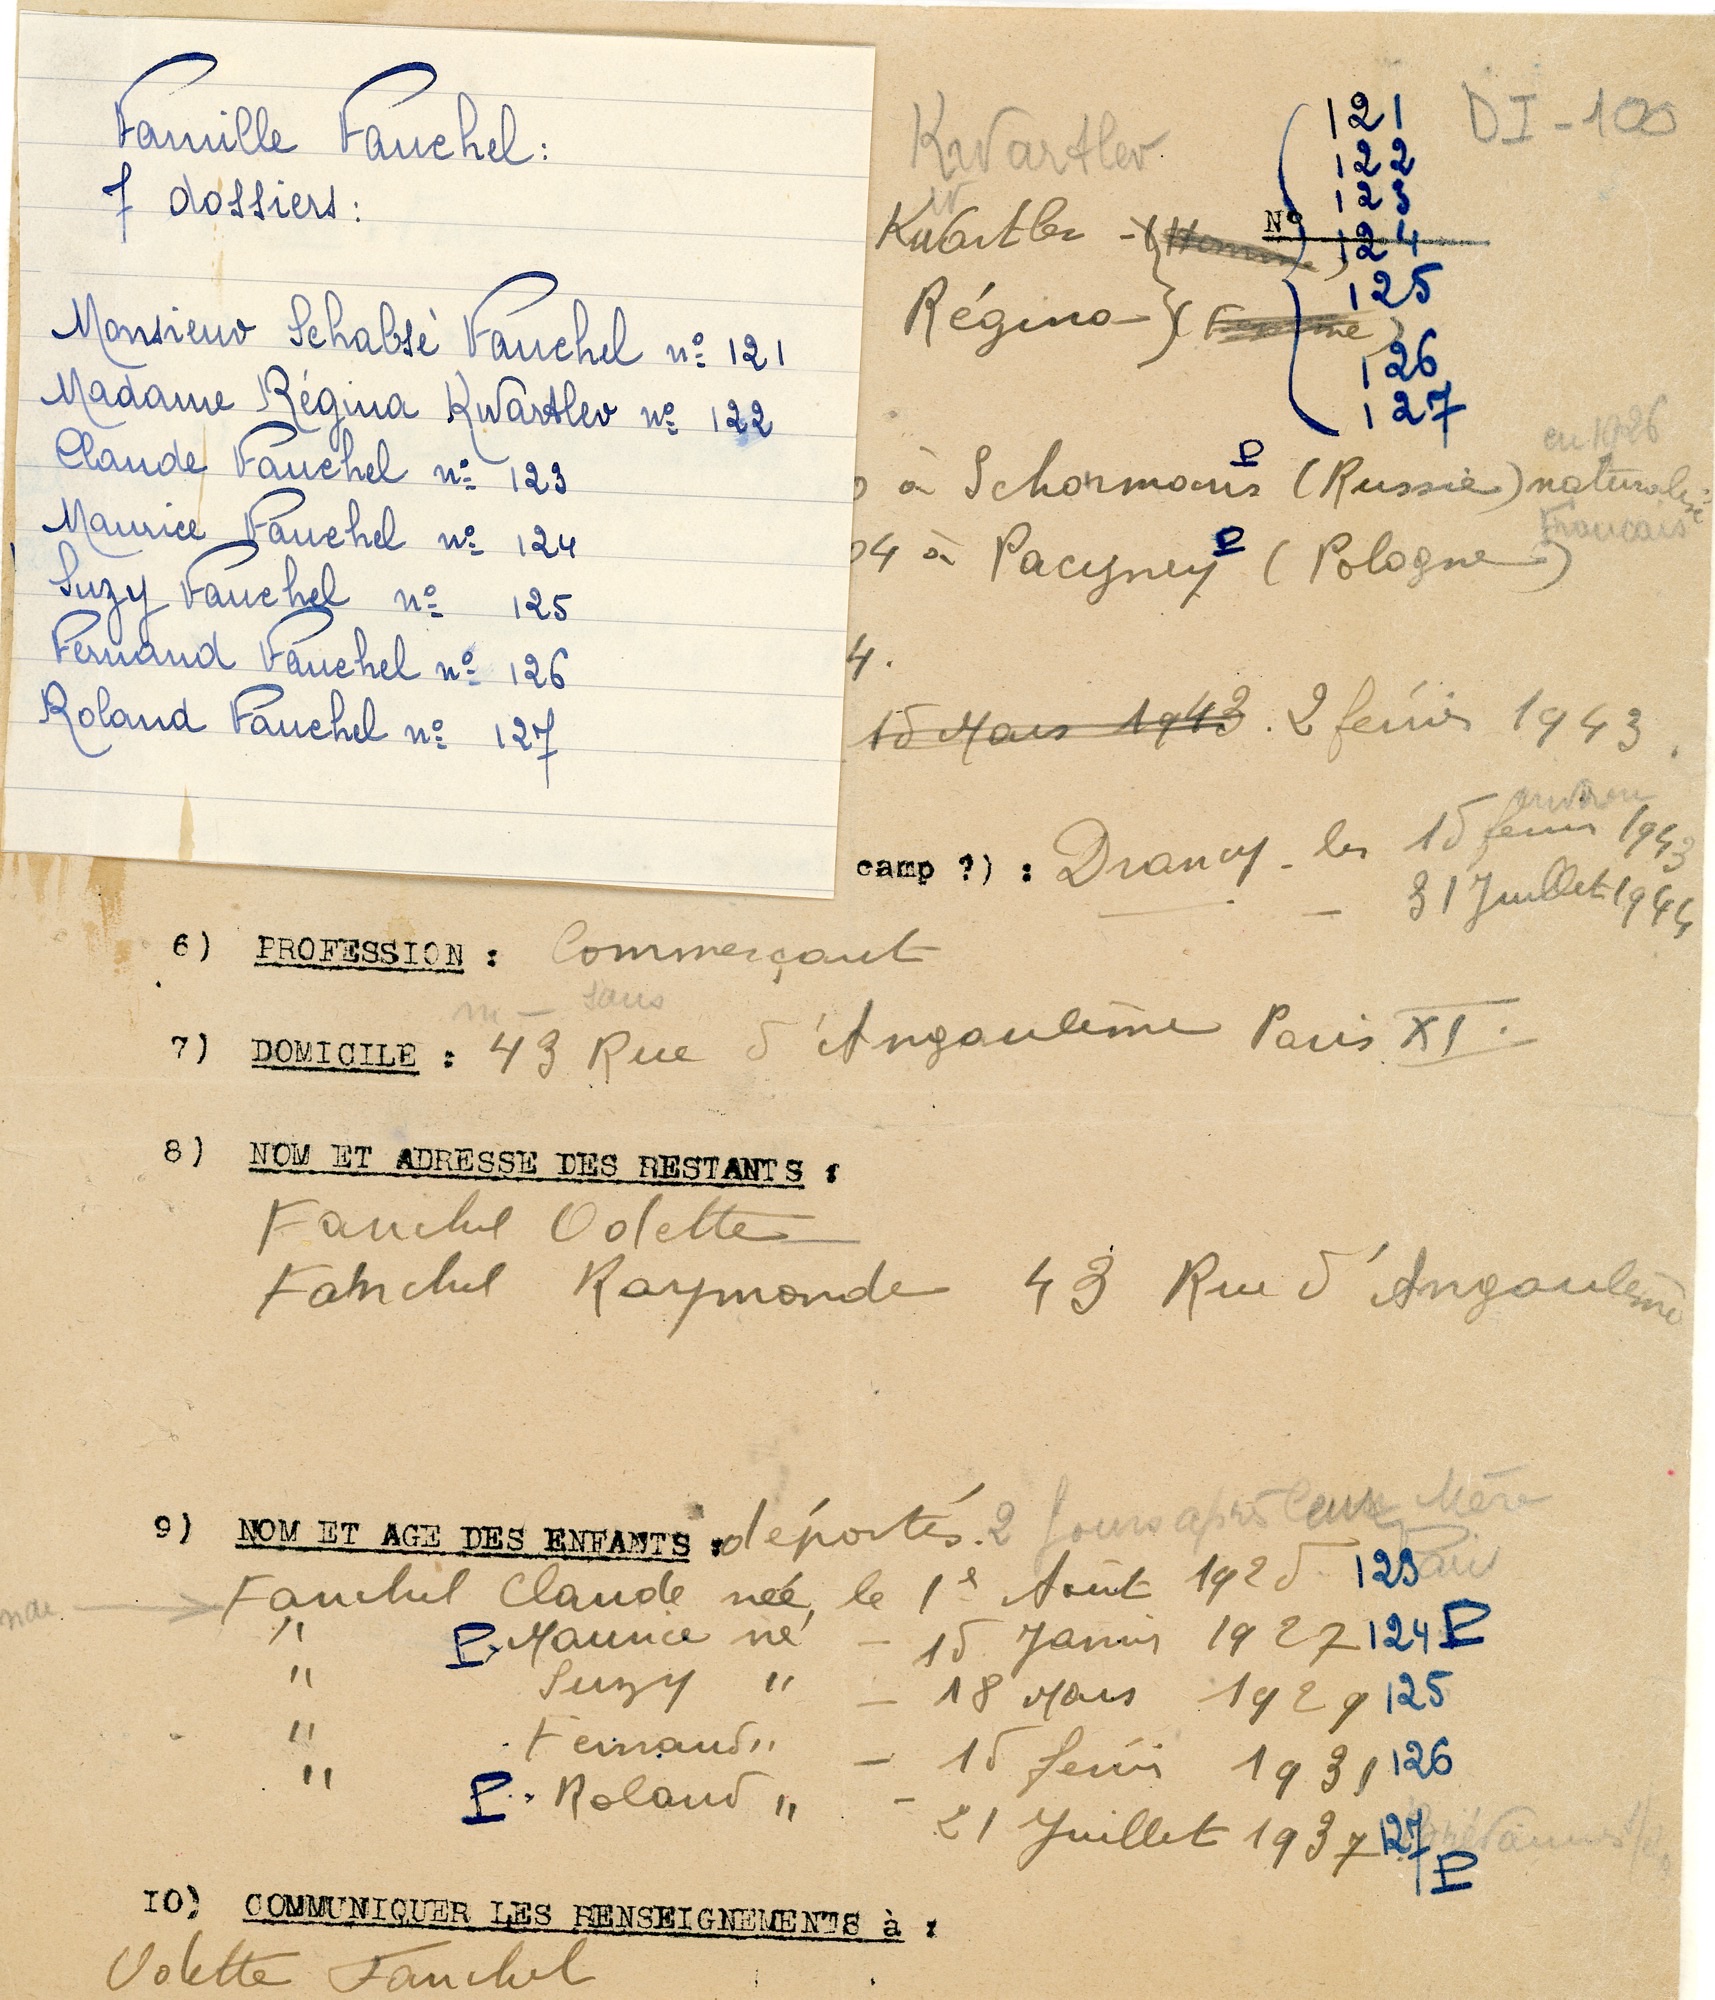 Famille Fauchel :
7 dossiers :
Monsieur Schabsé Fauchel nº 121
Madame Régina Kwartler nº 122
Claude Fauchel nº 123
Maurice Fauchel nº 124
Suzy Fauchel nº 125
Fernand Fauchel nº 126
Roland Fauchel nº 127
DI-100
Kwartler
Kwartler - (Homme)
Régina - (Femme)
Nº
121
122
123
124
125
126
127
à Schormous P (Russie) naturalisé Français en 1926
04 à Pacyney P (Pologne)
4.
15 Mars 1943. 2 février 1943.
camp ?) : Drancy - les 15 février 1943
environ
- 31 Juillet 1944
6) PROFESSION : Commerçant
m - sans
7) DOMICILE : 43 Rue d'Angoulême Paris XI.
8) NOM ET ADRESSE DES RESTANTS :
Fauchel Odette
Fauchel Raymonde 43 Rue d'Angoulême
9) NOM ET AGE DES ENFANTS : déportés. 2 jours après leur Mère
Fauchel Claude née, le 1e Août 1925 123 Paris
" P. Maurice né - 15 Janvier 1927 124 P
" Suzy " - 18 Mars 1929 125
" Fernand " - 15 février 1931 126
" P. Roland " - 21 Juillet 1937 127 P
10) COMMUNIQUER LES RENSEIGNEMENTS à :
Odette Fauchel